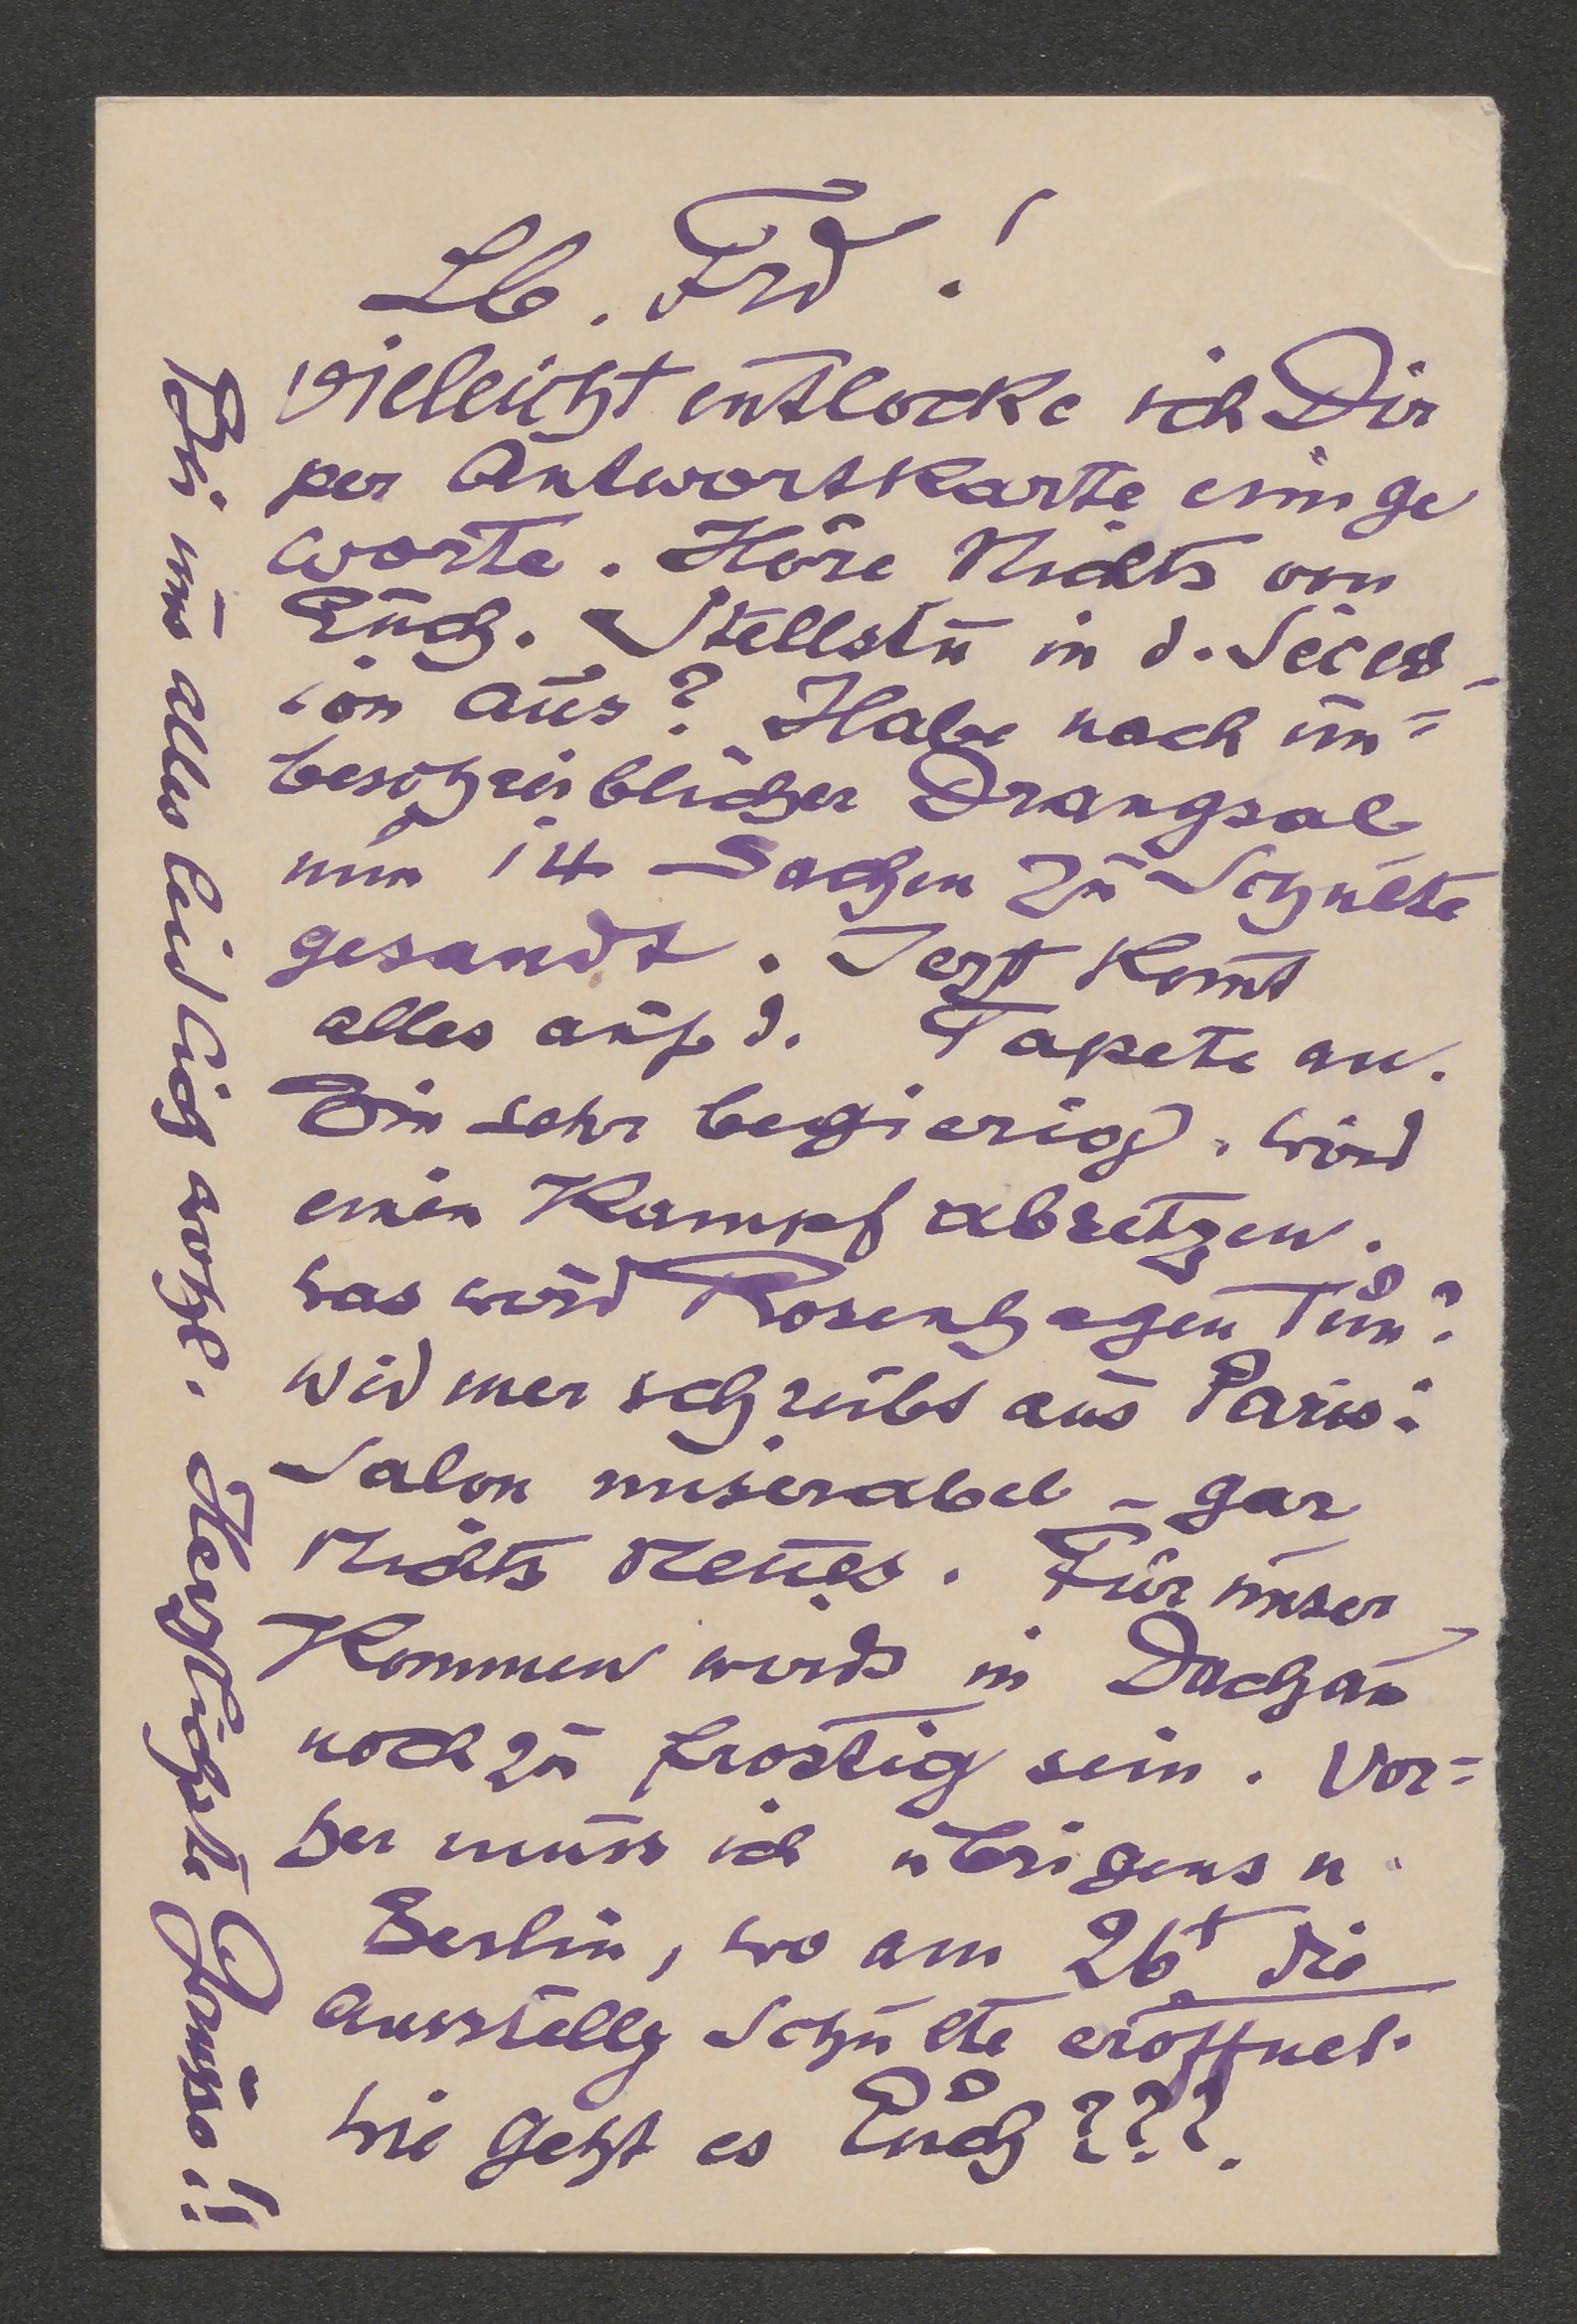 Lb. Frd!
Vielleicht entlocke ich Dir
per Antwortkarte einige
Worte. Höre Nichts von
Euch. Stellst̄u in d. Secess-
ion aus? Habe nach un=
beschreiblicher Drangsal
nun 14 Sachen zu Schulte
gesandt. Jezt kom̄t
alles auf d. Tapete an.
Bin sehr begierig. Wird
einen Kampf absetzen.
Was wird Rosenhagen Tun?
Widmer schreibt aus Paris:
Salon miserabel – gar
Nichts Neues. Für unser
Kommen wirds in Dachau
noch zu frostig sein. Vor=
her muss ich übrigens n.
Berlin, wo am 26t die
Ausstellg Schulte eröffnet.
Wie geht es Euch???.
Bei uns alles leidlich wohl. Herzlichste Grüsse!!